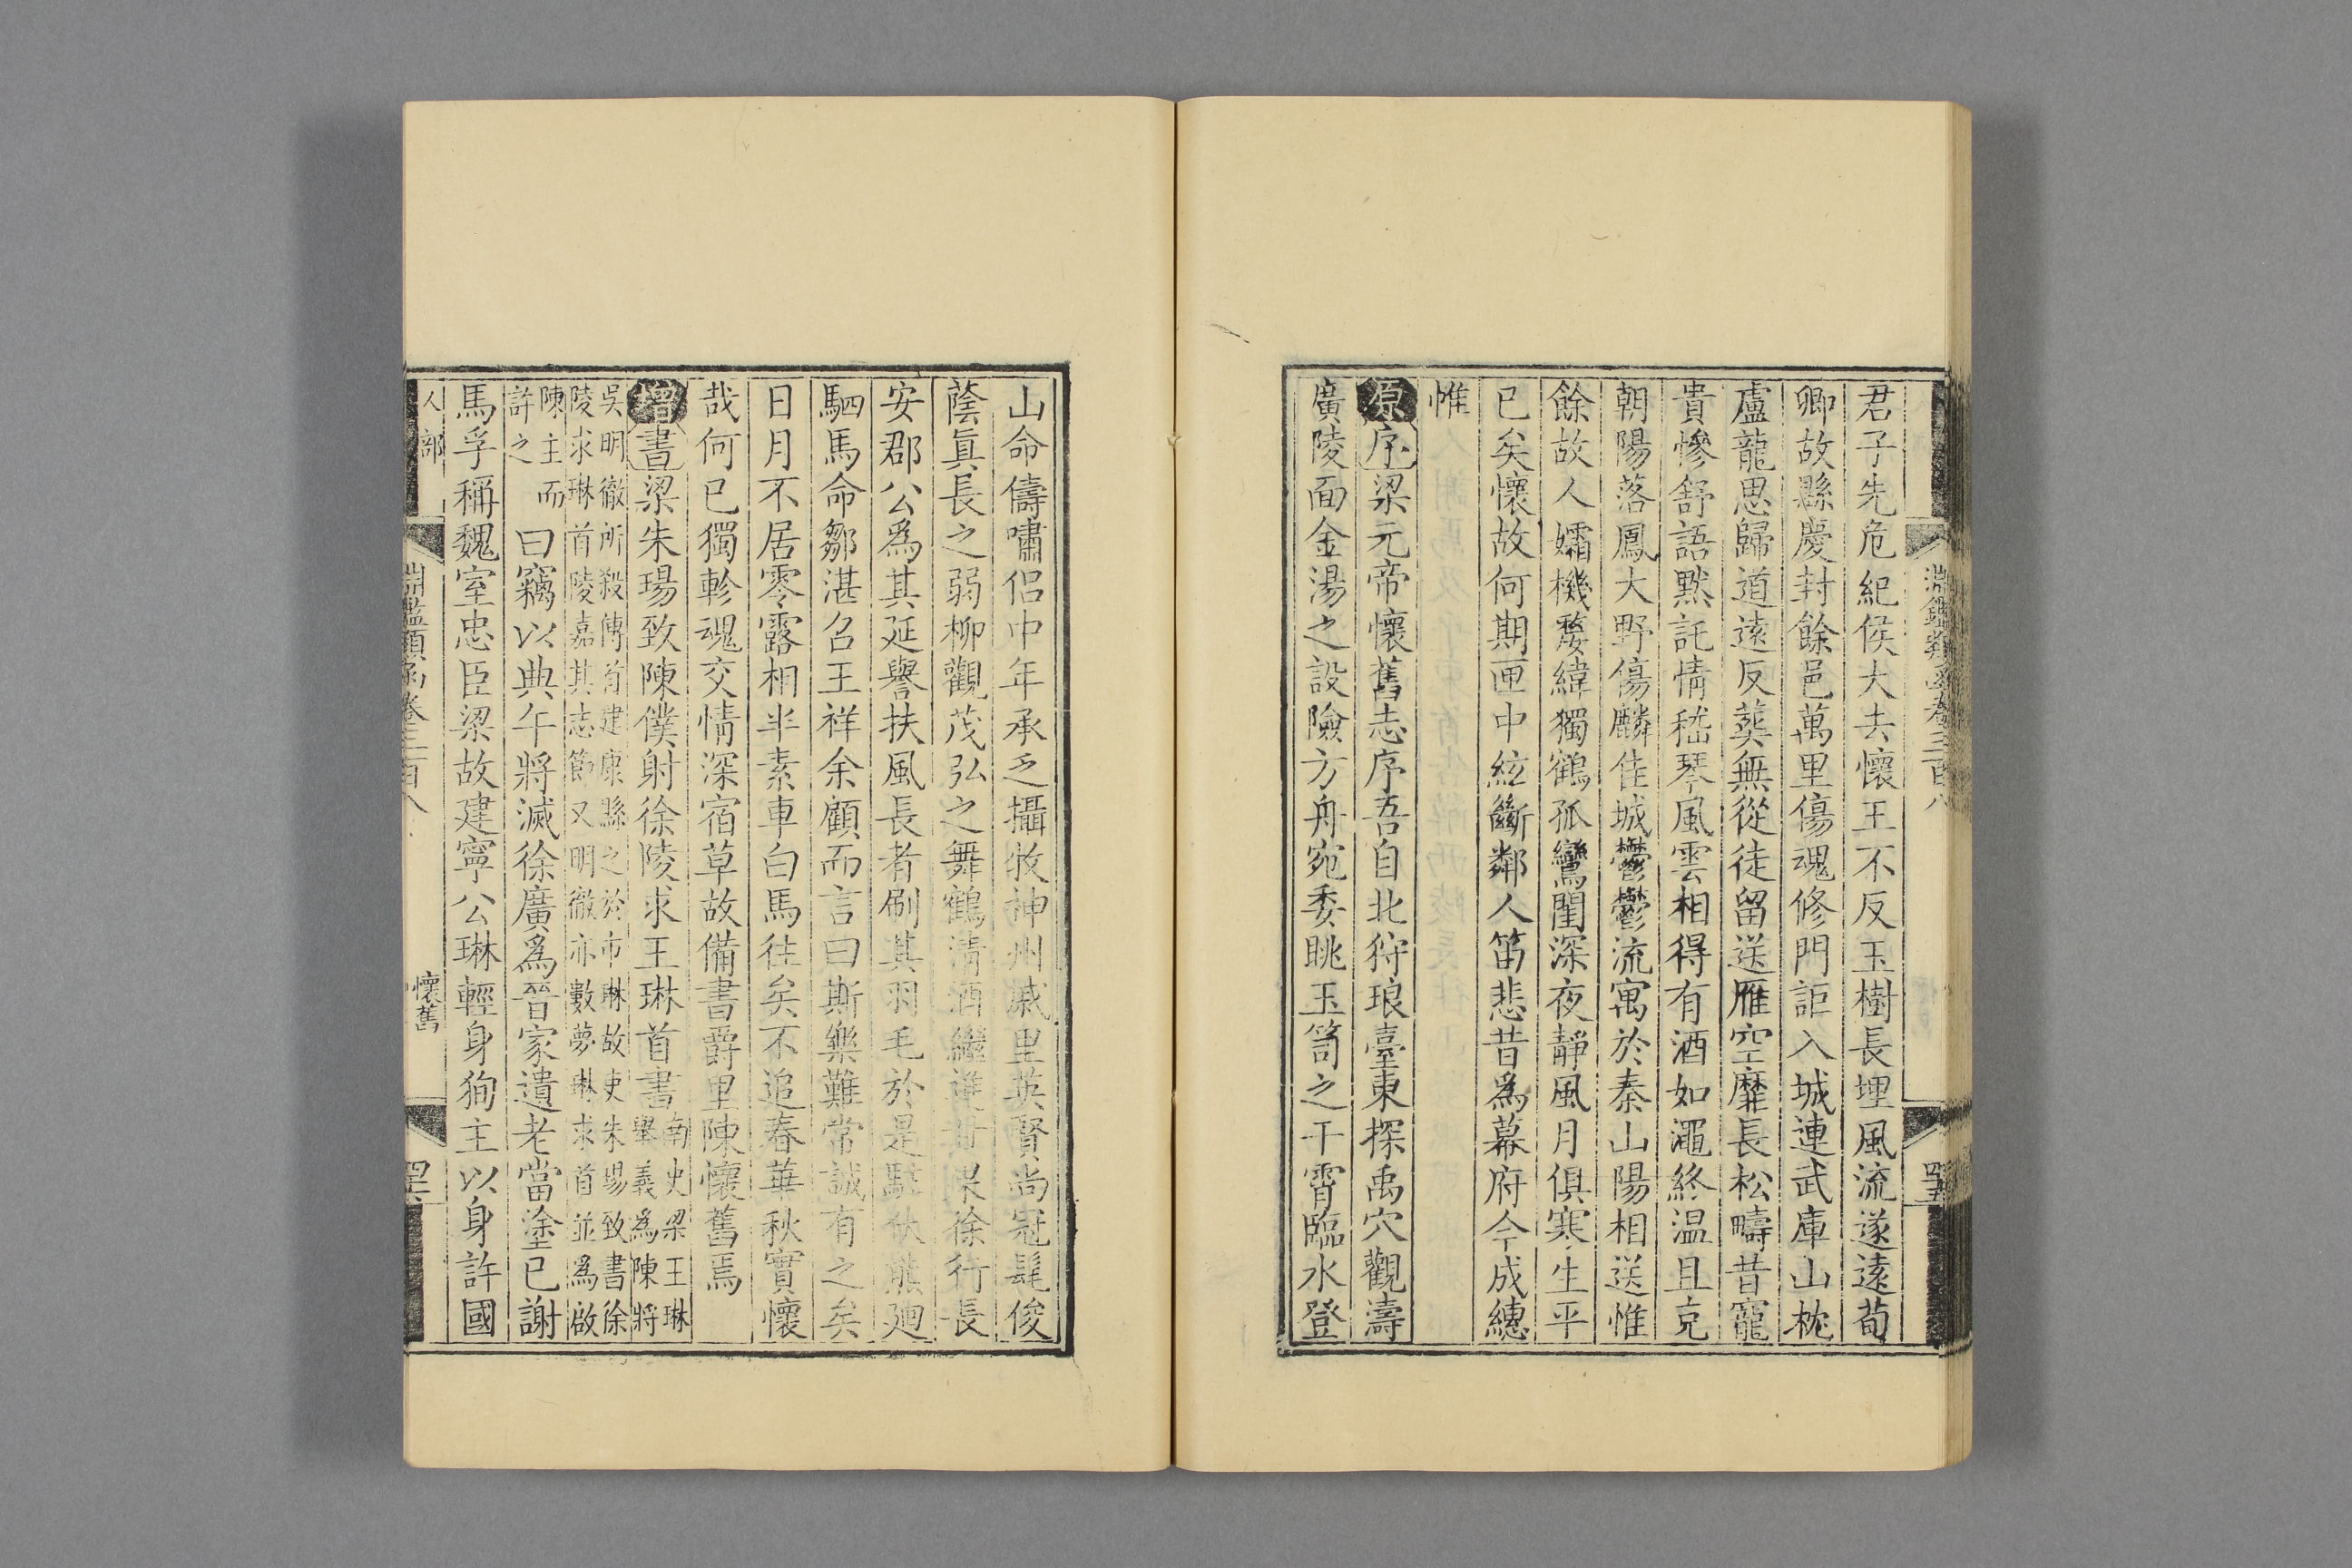 淵鑑類函卷三百八
君子先危紀侯大去懷王不反玉樹長埋風流遂遠荀
卿故縣慶封餘邑萬里傷魂修門詎入城連武庫山枕
盧龍思歸道遠反葬無從徒留送雁空靡長松疇昔寵
貴慘舒語默託情嵇琴風雲相得有酒如澠終温且克
朝陽落鳳大野傷麟佳城鬱鬱流寓於秦山陽相送惟
餘故人孀機嫠緯獨鶴孤鸞閨深夜靜風月俱寒生平
已矣懷故何期匣中絃斷鄰人笛悲昔爲幕府今成繐
帷
原序梁元帝懷舊志序吾自北狩琅臺東探禹穴觀濤
廣陵面金湯之設險方舟宛委眺玉笥之干霄臨水登
山命儔嘯侣中年承乏攝牧神州戚里英賢尚冠髦俊
蔭眞長之弱柳觀茂弘之舞鶴清酒繼進甘果徐行長
安郡公爲其延譽扶風長者刷其羽毛於是駐伏熊廻
駟馬命鄒湛召王祥余顧而言曰斯樂難常誠有之矣
日月不居零露相半素車白馬往矣不追春華秋實懷
哉何已獨軫魂交情深宿草故備書爵里陳懷舊焉
增書梁朱瑒致陳僕射徐陵求王琳首書南史梁王琳
舉義爲陳將
吳明徹所殺傳首建康縣之於市琳故吏朱瑒致書徐
陵求琳首陵嘉其志節又明徹亦數夢琳求首並爲啟
陳主而
許之
曰竊以典午將滅徐廣爲晉家遺老當塗已謝
馬孚稱魏室忠臣梁故建寧公琳輕身徇主以身許國
人部
淵鑑類函卷三百八
懷舊